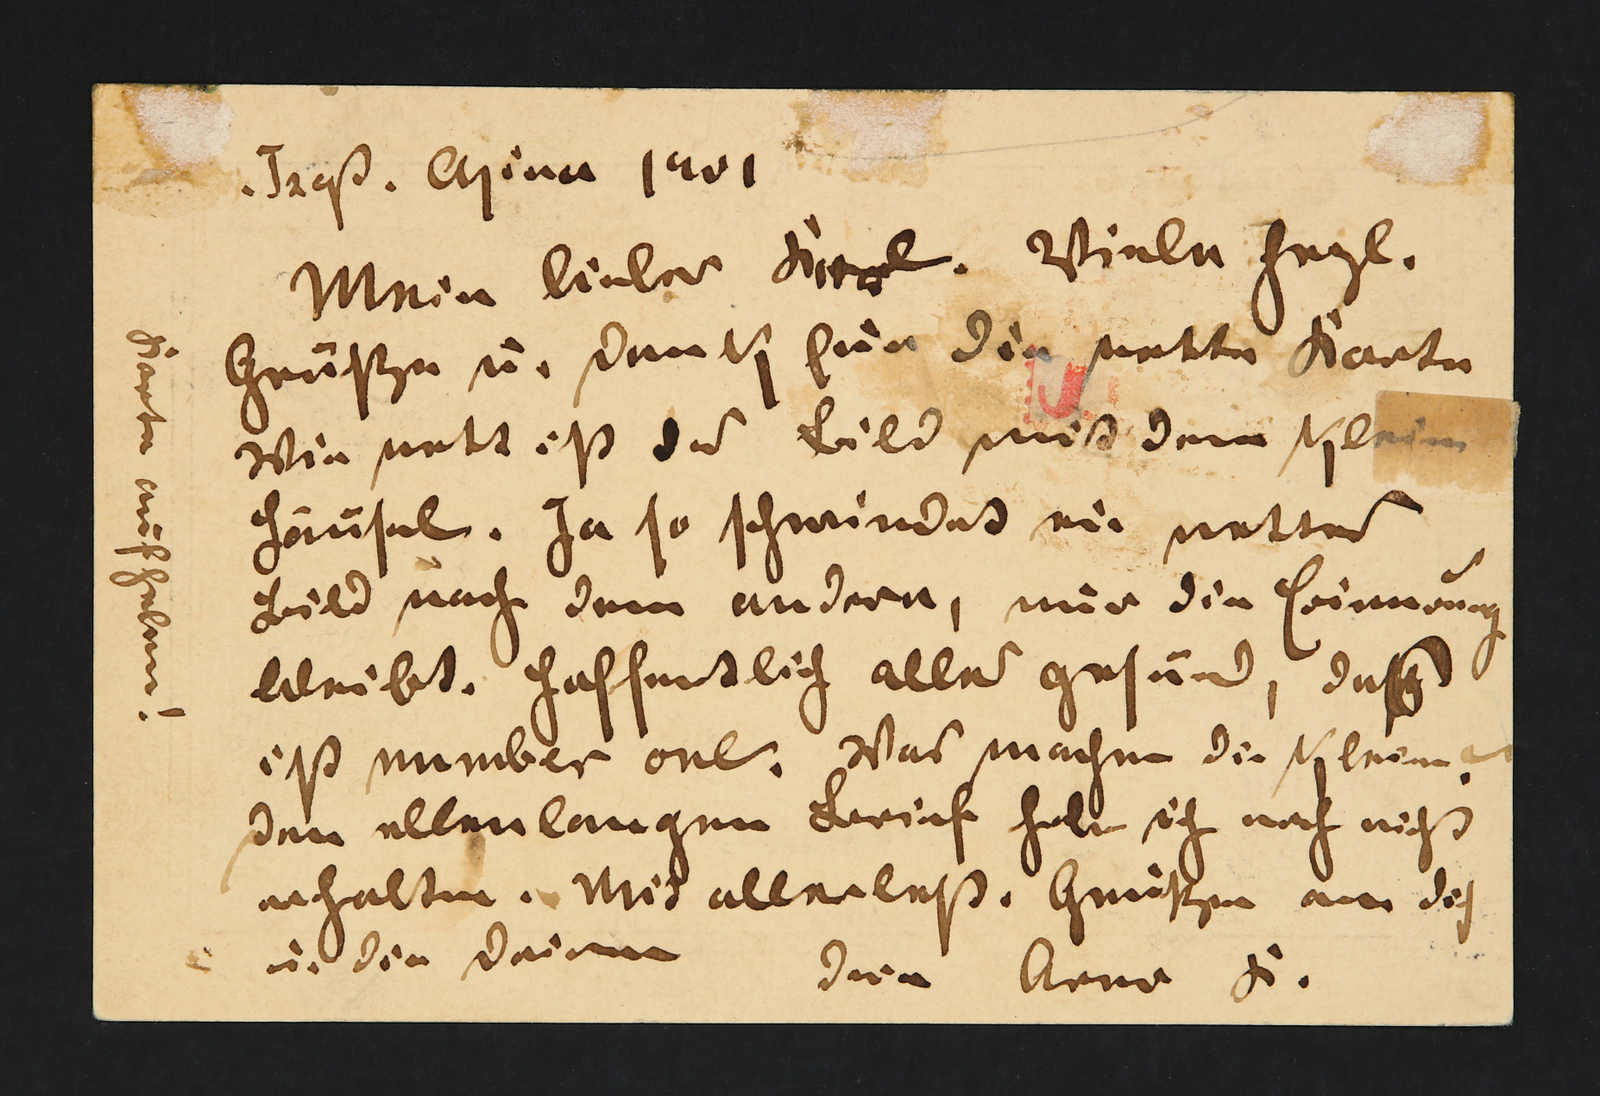 China 1901
Mein lieber Karl. Viele herzl.
Grüßze u. Dank für die nette Karte
Wie nett ist das Bild mit dem klein
Häusel. Ja so schwindet ein nettes
Bild nach dem andern, nur die Erinnerung
bleibt. Hoffentlich alles gesund, dass
ist number one. Was machen die Kleinen
den ellenlangen Brief habe ich noch nicht
erhalten. Mit allerbest. Grüßzen an dich
u. die Deinen Dein K.
Karte aufheben!